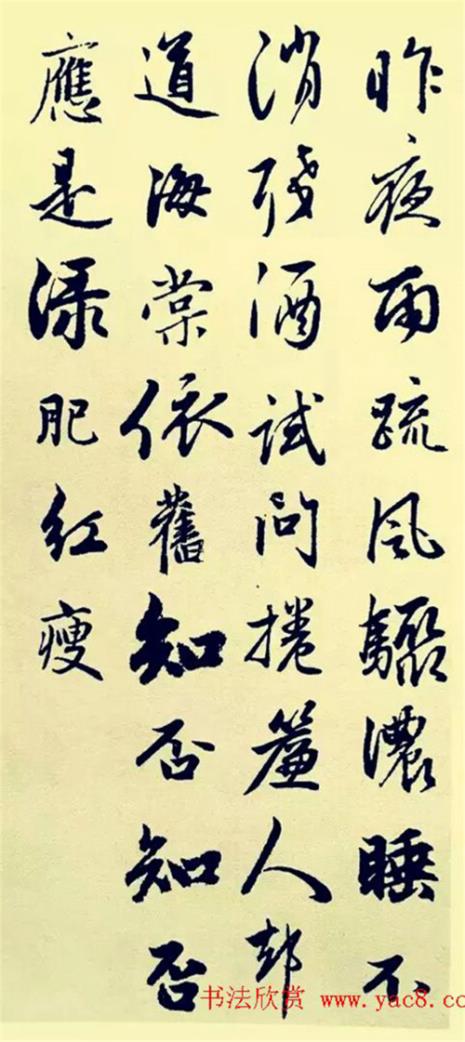 昨夜雨疏风骤濃睡不
消残酒试问捲簾人却
道海棠依舊知否知否
應是渌肥红瘦
书法欣赏 www.yac8.co